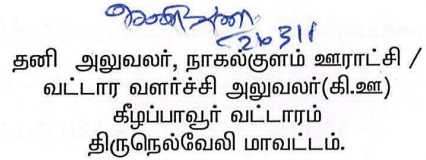 26311
தனி அலுவலர், நாகல்குளம் ஊராட்சி /
வட்டார வளர்ச்சி அலுவலர்(கி.ஊ)
கீழப்பாவூர் வட்டாரம்
திருநெல்வேலி மாவட்டம்.